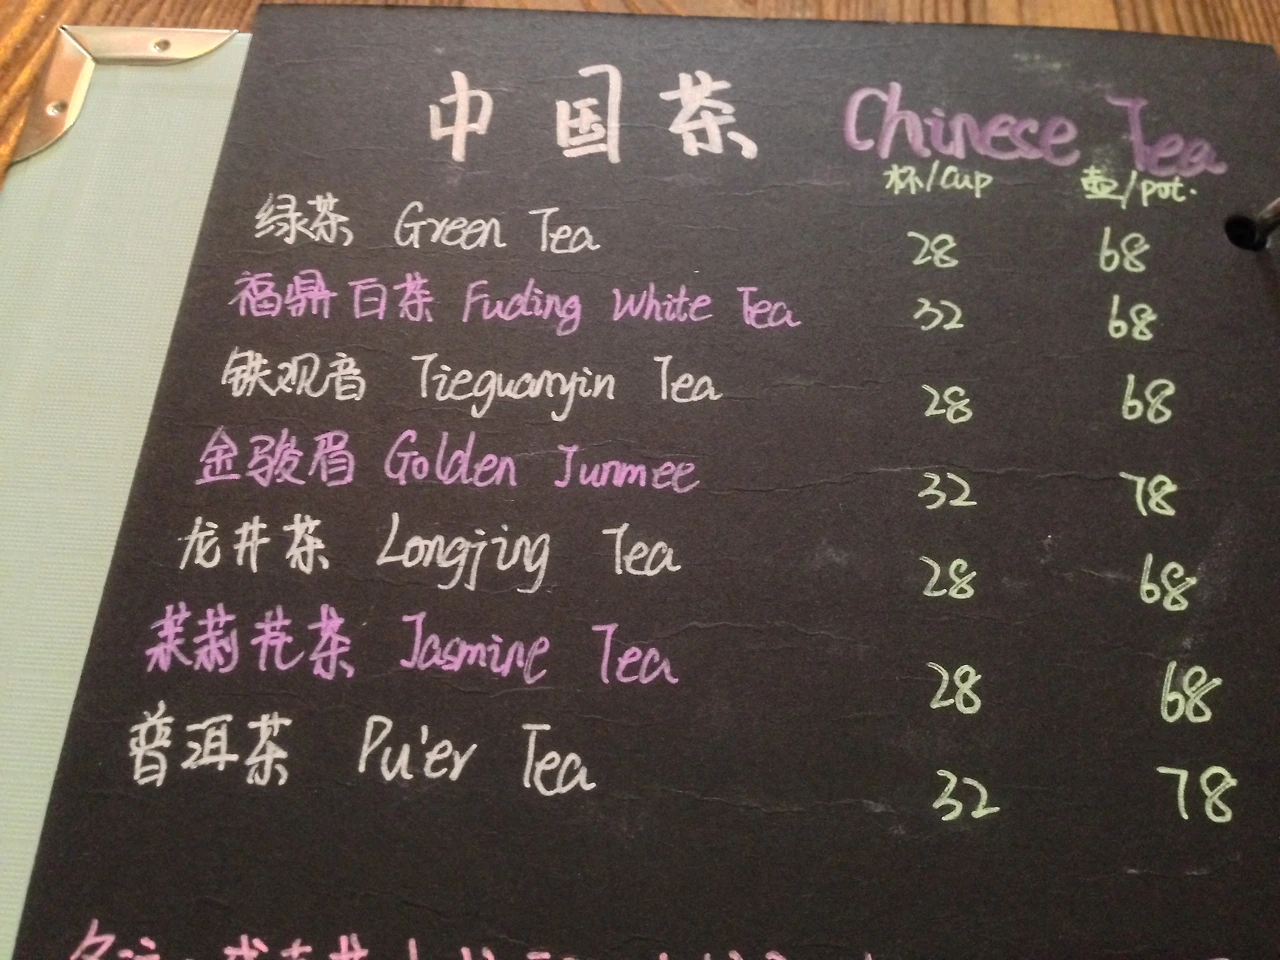 中国茶 Chinese Tea
杯/cup 壶/pot.
绿茶 Green Tea 28 68
福鼎白茶 Fuding White Tea 32 68
铁观音 Tieguanyin Tea 28 68
金骏眉 Golden Junmee 32 78
龙井茶 Longjing Tea 28 68
茉莉花茶 Jasmine Tea 28 68
普洱茶 Pu'er Tea 32 78